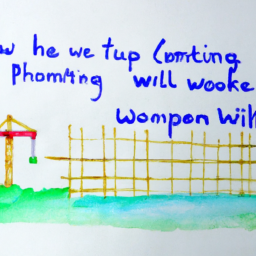 w he we tup Comting
Phomting will wooke
Wompon Will